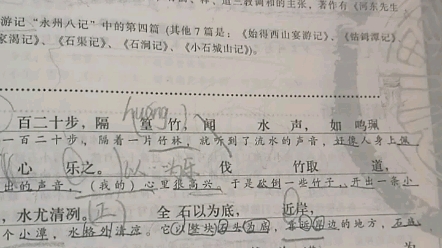 道三教调和的主张，著作有《河东先生
游记“永州八记”中的第四篇（其他7篇是：《始得西山宴游记》、《钴鉧潭记》
家渴记》、《石渠记》、《石涧记》、《小石城山记》）。
huáng
百二十步，隔 篁竹，闻 水 声，如 鸣珮
一百二十步，隔着一片竹林，就听到了流水的声音，好像人身上佩
心 乐之。 以…为乐 伐 竹取 道，
出的声音，（我的）心里很高兴。于是砍倒一些竹子，开出一条小
水尤清冽。 全 石以为底， 近岸，
个小潭，水格外清凉。它（以）整块石头为底，靠近岸边的地方，石底
为